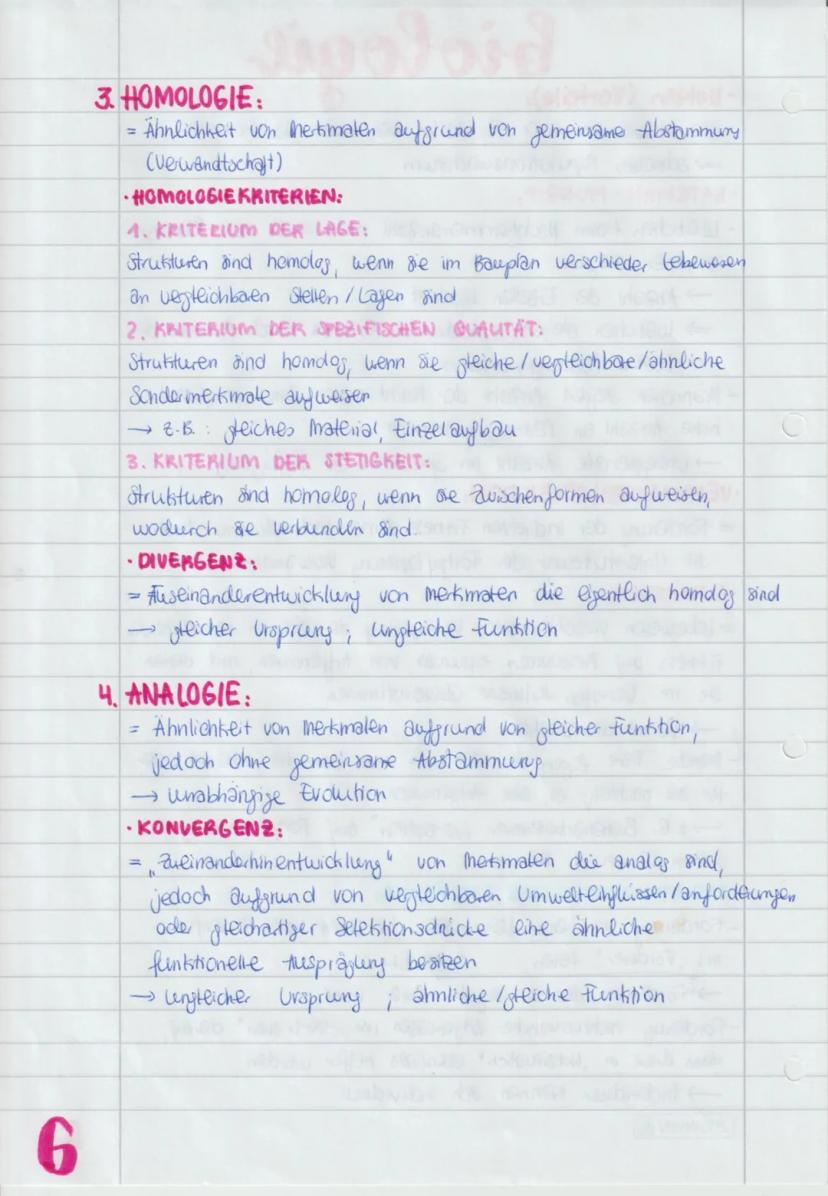 3. HOMOLOGIE:
= Ähnlichkeit von Merkmalen aufgrund von gemeinsame Abstammung
(Verwandtschaft)
· HOMOLOGIEKRITERIEN:
1. KRITERIUM DER LAGE:
Strukturen sind homolog, wenn sie im Bauplan verschieder Lebewesen
an vergleichbaren Stellen / Lagen sind
2. KRITERIUM DER SPEZIFISCHEN QUALITÄT:
Strukturen sind homolog, wenn sie gleiche / vergleichbare / ähnliche
Sondermerkmale aufweisen
→ z.B.: gleiches Material, Einzelaufbau
3. KRITERIUM DER STETIGKEIT:
Strukturen sind homolog, wenn sie Zwischenformen aufweisen,
wodurch sie verbunden sind.
· DIVERGENZ:
= Auseinanderentwicklung von Merkmalen die eigentlich homolog sind
→ gleicher Ursprung ; ungleiche Funktion
4. ANALOGIE:
= Ähnlichkeit von Merkmalen aufgrund von gleicher Funktion,
jedoch ohne gemeinsame Abstammung
→ unabhängige Evolution
· KONVERGENZ:
= „Zueinanderhinentwicklung" von Merkmalen die analog sind,
jedoch aufgrund von vergleichbaren Umwelteinflüssen / anforderungen
oder gleichartiger Selektionsdrücke eine ähnliche
funktionelle Ausprägung besitzen
→ ungleicher Ursprung ; ähnliche / gleiche Funktion
6